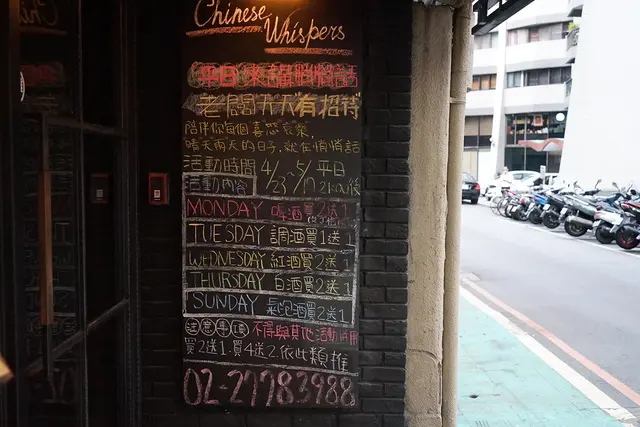 Chinese
Whispers
平日來講悄悄話
老闆天天有招待
陪伴你每個喜怒哀樂,
晴天雨天的日子,就在悄悄話
活動時間 4/23~5/17 平日 21:00後
活動內容
MONDAY 啤酒買2送1
TUESDAY 調酒買1送1
WEDNESDAY 紅酒買2送1
THURSDAY 白酒買2送1
SUNDAY 氣泡酒買2送1
注意事項 不得與其他活動併用
買2送1.買4送2.依此類推
02-27783988